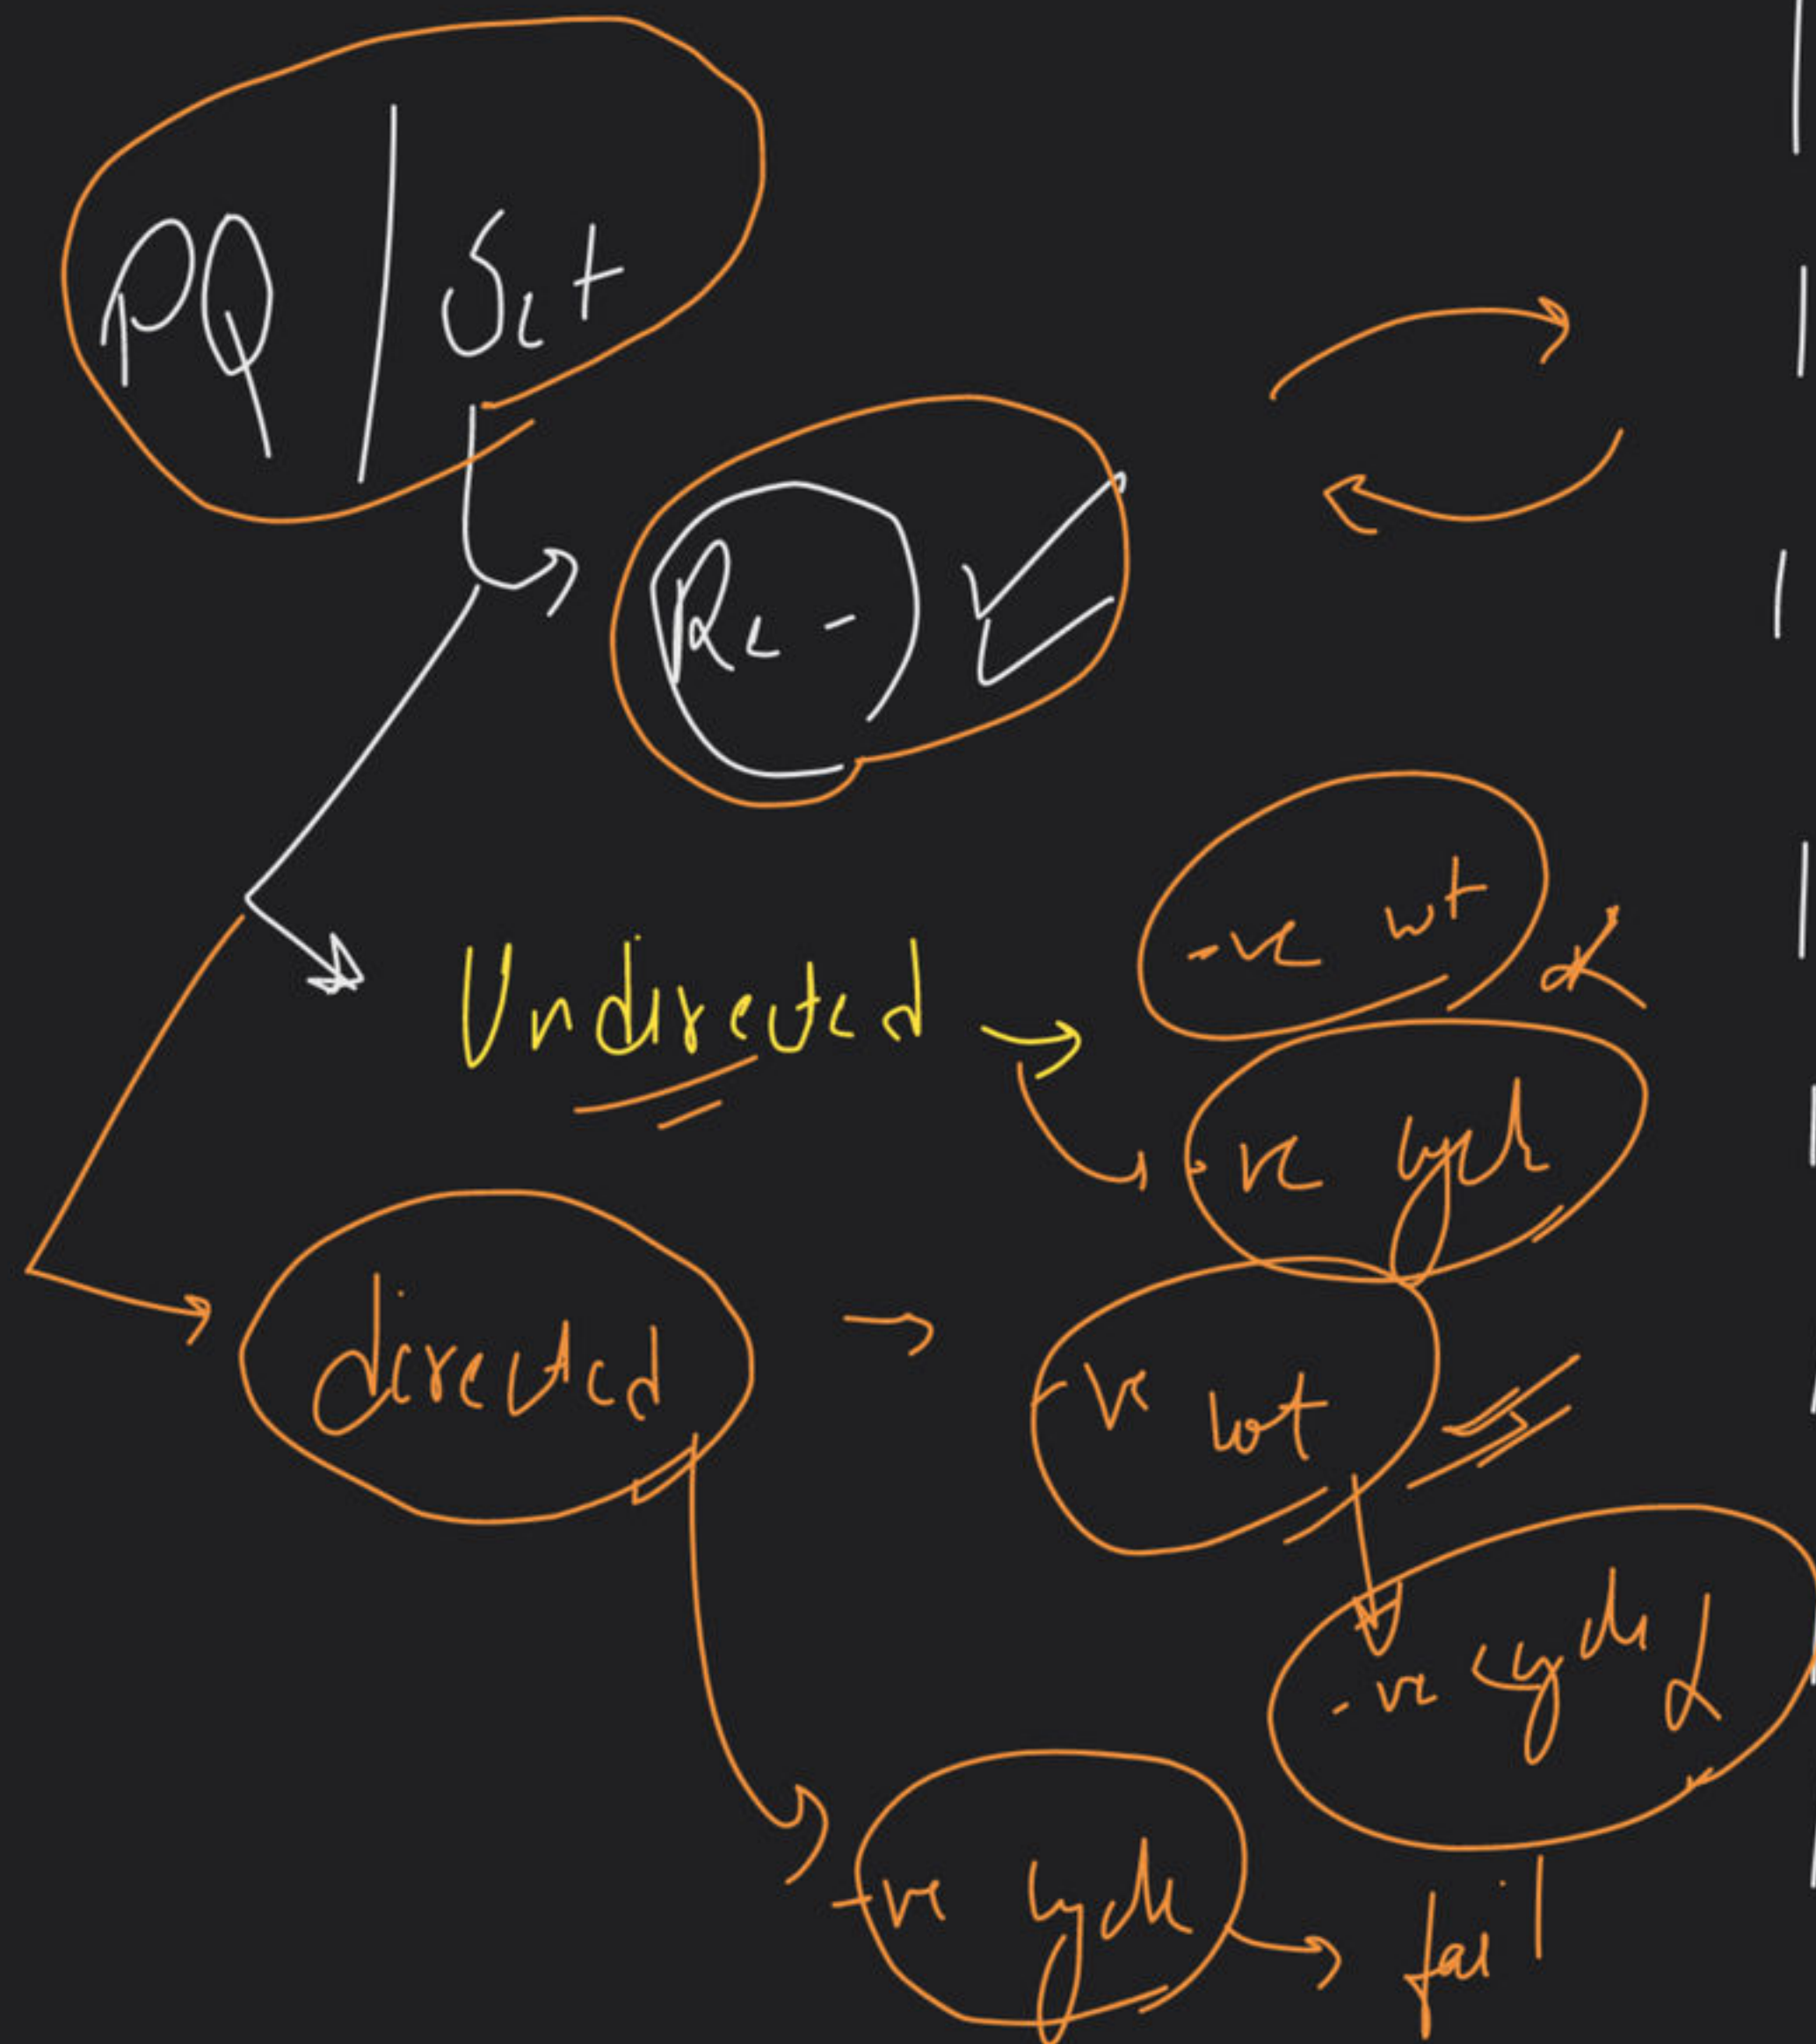 PQ / Set
Re -
-ve wt
Undirected
-ve cycle
directed
-ve wt
-ve cycle
-ve cycle
fail